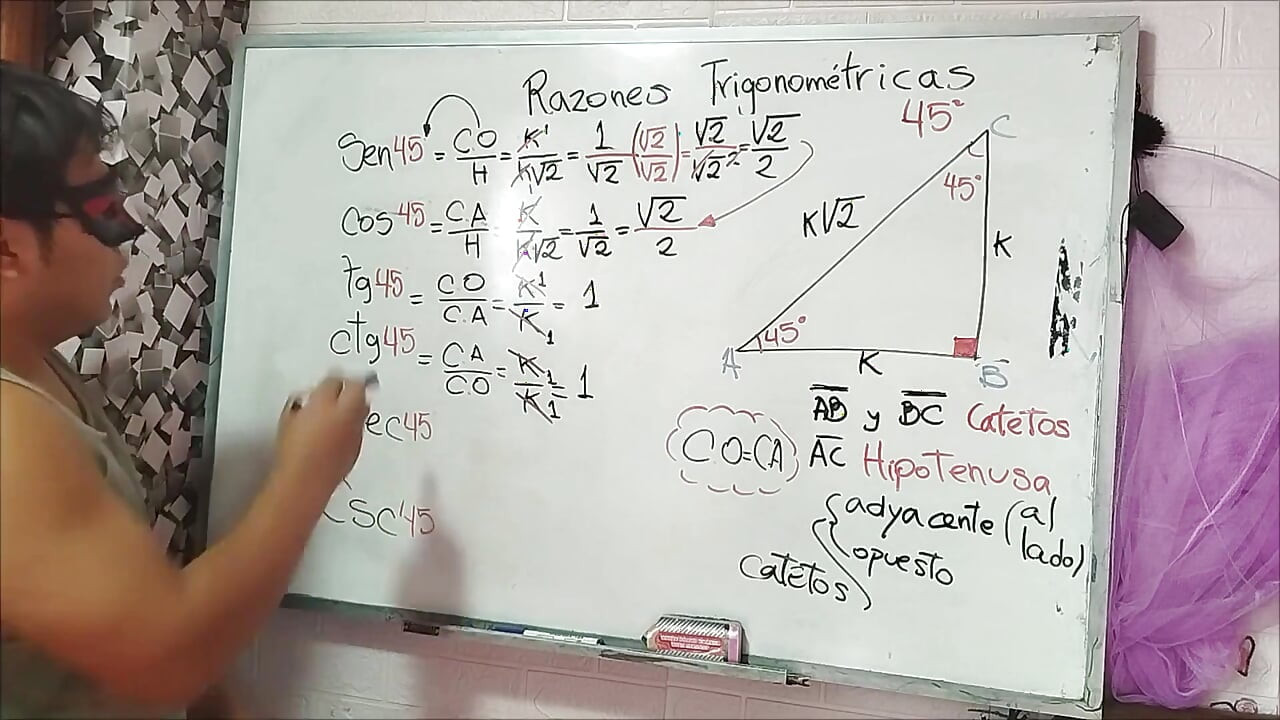 Razones Trigonométricas
45°
Sen45 = CO/H = K1/K√2 = 1/√2 (√2/√2) = √2/√2² = √2/2
Cos45 = C.A/H = K/K√2 = 1/√2 = √2/2
Tg45 = CO/C.A = K1/K1 = 1
ctg45 = C.A/CO = K1/K1 = 1
ec45
Csc45
C
45°
K√2
K
45°
A
K
B
AB y BC Catetos
CO=CA
AC Hipotenusa
Catetos
adyacente (al lado)
opuesto